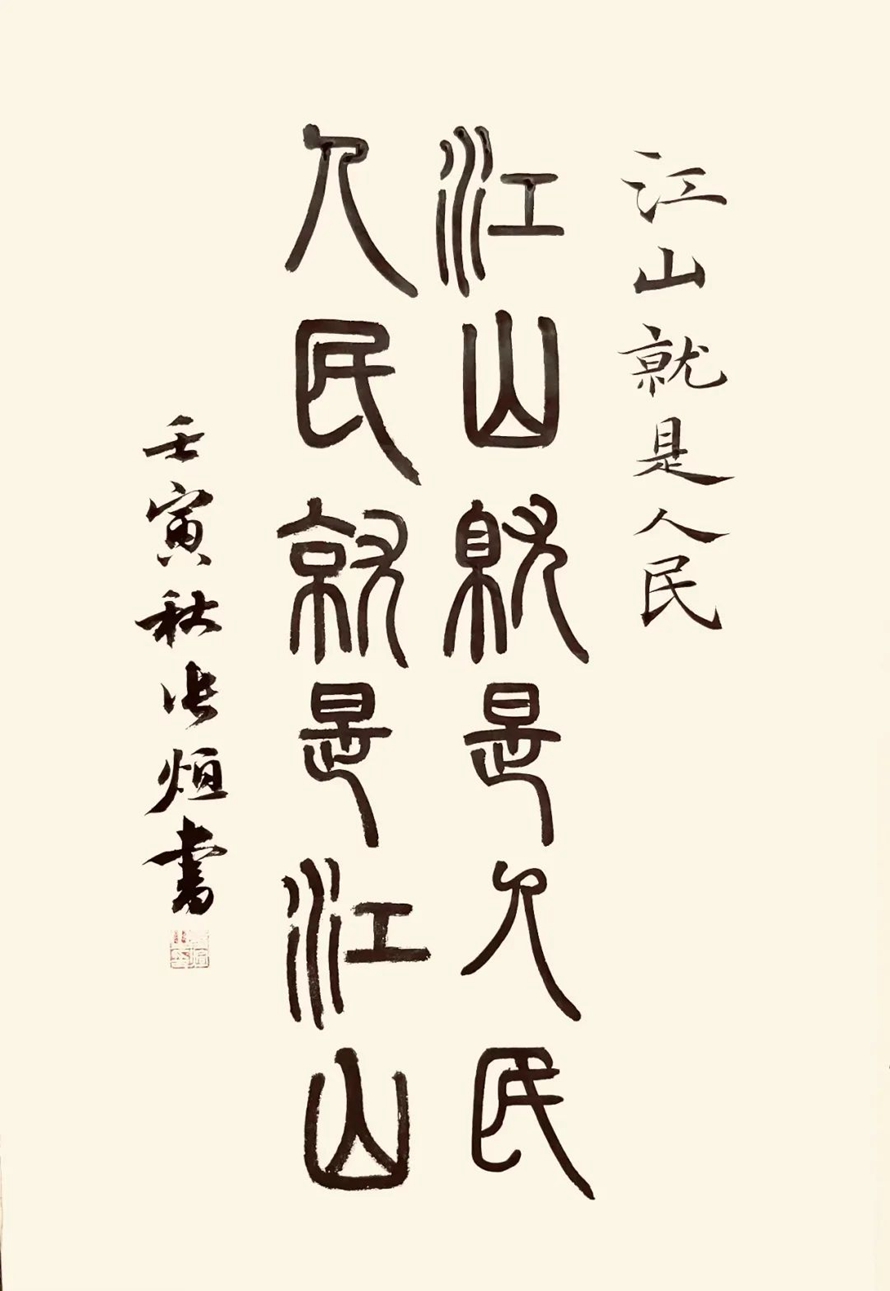 江山就是人民
江山就是人民
人民就是江山
壬寅秋张烜書